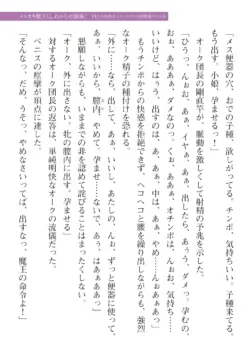 「メス便器の穴、おでの子種、欲しがってる。チンポ、気持ちいい、子種来てる。
もう出す。小娘、孕ませるっ！」
オーク団長の剛直が、脈動を激しくして射精の予兆を示した。
「ひうっ、んぉぉ、あぁ、イヤぁ、あぁ、出したら、あぅう、ダメっ、孕むの、
おぉ、あぁぁっ、ダメなのっ、くぅぅ、あぁぁ、オチンポは、んぉぉ、気持ち…
いいけど、はぅっ、出すのは、あぁ、中は、あぁっ、やめて、んぉ、おぉぉっ」
もうチンポからの快感を拒絶できず、ヘコヘコと腰を繰り出しながらも、強烈
なオーク精子の種付けを怯える。
「外に……なら、出して、あぁ、いいし、あたしの、んぉ、ずっと便器に使って、
あぁ、いいから、膣内、やめて、孕ませ……ないで、あぅ、はぁぁああっ」
懇願しながらも、今までの非を認めて詫びることはしたくない。
「オーク、外に出さない。牝の膣内に出す、孕ませる」
オーク団長の返答は、単純明快なオークの流儀だった。
ペニスの痙攣が頂点に達した。
「そんなっ、だめ、うそっ、やめなさいってば、出すなっ、魔王の命令よ！」